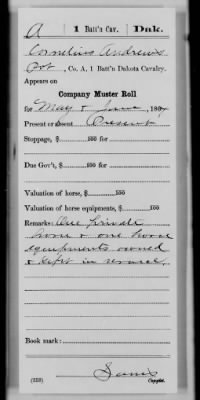 A | 1 Batt'n Cav. | Dak.
Cornelius Andrews
Pvt, Co. A, 1 Batt'n Dakota Cavalry.
Appears on
Company Muster Roll
for May & June, 1864
Present or absent Present
Stoppage, $ 100 for
Due Gov't, $ 100 for
Valuation of horse, $ 100
Valuation of horse equipments, $ 100
Remarks: One private
horse & one horse
equipments owned
& kept in service.
Book mark:
(858)
Copyist.